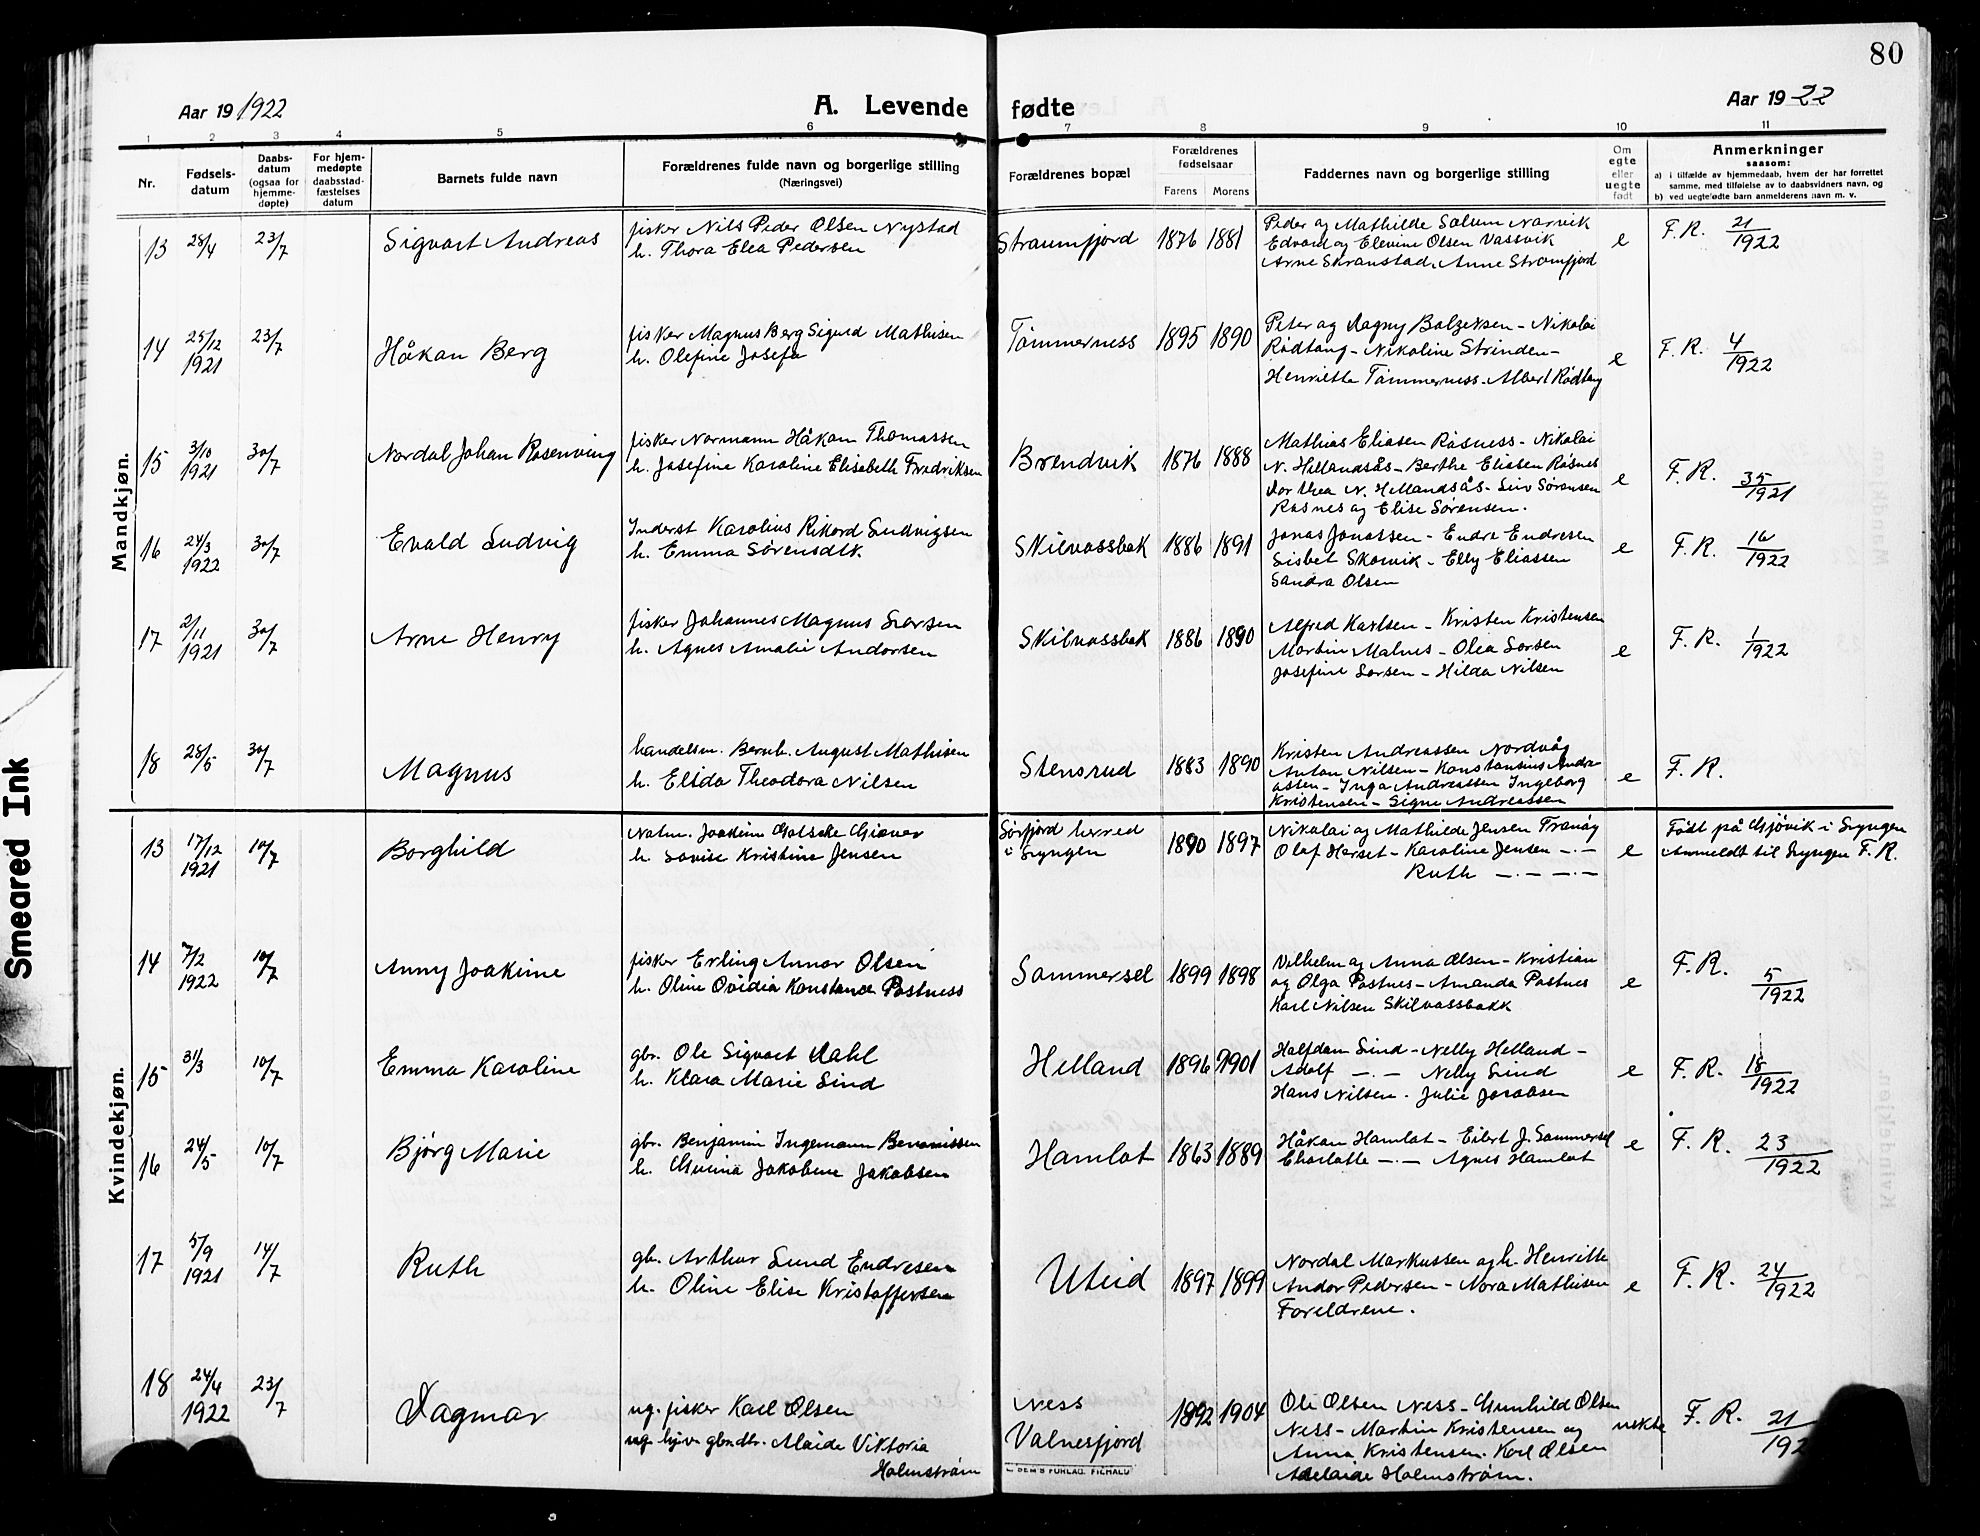 80
Aar 19 1922
A. Levende fødte
Aar 1922
1 2 3 4 5 6 7 8 9 10 11
Nr.
Fødsels-
datum
Daabs-
datum
(ogsaa for
hjemme-
døpte)
For hjem-
medøpte
daabsstad-
fæstelses
datum
Barnets fulde navn
Forældrenes fulde navn og borgerlige stilling
(Næringsvei)
Forældrenes bopæl
Forældrenes
fødselsaar
Farens Morens
Faddernes navn og borgerlige stilling
Om
egte
eller
uegte
født
Anmerkninger
saasom:
a) i tilfælde av hjemmedaab, hvem der har forrettet
samme, med tilføielse av to daabsvidners navn, og
b) ved uegtefødte barn anmelderens navn m. v.
Mandkjøn.
13 28/4 23/7 Sigvart Andreas
fisker Nils Peder Olsen Nystad
h. Thora Elea Pedersen
Straumfjord 1876 1881
Peder og Mathilde Solum Narvik
Edvard og Elevine Olsen Vassvik
Arne Skranstad. Anne Stromfjord
e F. R. 21/1922
14 25/12 1921 23/7 Håkan Berg
fisker Magnus Berg Sigurd Mathisen
h. Olefine Josefa
Tømmerness 1895 1890
Peter og Dagny Balzersen - Nikolai
Rødtang - Nikoline Strinden -
Henriette Tømmerness - Albert Rødtang
e F. R. 4/1922
15 3/10 1921 30/7 Nordal Johan Rosenving
fisker Normann Håkon Thomassen
h. Josefine Karoline Elisabeth Fredriksen
Brendvik 1876 1888
Mathias Eliasen Råsness - Nikolai
N. Hellandsås - Berthe Eliasen Råsnes
Dorthea N. Hellandsås - Siv Sørensen
Rasnes og Elise Sørensen.
e F. R. 35/1921
16 24/3 1922 30/7 Evald Ludvig
Inderst Karolius Rikord Ludvigsen
h. Emma Sørensdtk
Skilvassbak 1886 1891
Jonas Jonassen - Endre Endresen
Lisbet Skarvik - Elly Eliassen
Sandra Olsen
e F. R. 16/1922
17 2/11 1921 30/7 Arne Henry
fisker Johannes Magnus Larsen
h. Agnes Amalie Andorsen
Skilvassbak 1886 1890
Alfred Karlsen - Kristen Kristensen
Martin Malnes - Olea Larsen
Josefine Larsen - Hilda Nilsen
e F. R. 1/1922
18 28/5 30/7 Magnus
handelsm. Bernh. August Mathisen
h. Elida Theodora Nilsen
Stensrud 1883 1890
Kristen Andreassen Nordvåg
Anton Nilsen - Konstansius Andre
assen - Inga Andreassen Ingeborg
Kristensen - Signe Andreassen
e F. R.
Kvindekjøn.
13 17/12 1921 10/7 Borghild
Natm. Joakim Gotske Giæver
h. Lovise Kristine Jensen
Sørfjord herred
i Lyngen
1890 1897
Nikolai og Mathilde Jensen Tranøy
Olaf Harset - Karoline Jensen -.-
Ruth -.- -.-
e
Født på Gjøvik i Lyngen
Anmeldt til Lyngen F. R.
14 7/2 1922 10/7 Anny Joakime
fisker Erling Annar Olsen
h. Oline Ovidia Konstance Pastness
Sommersel 1899 1898
Vilhelm og Anna Olsen - Kristian
og Olga Pastnes - Amanda Pastnes
Karl Nilsen Skilvassbakk
e F. R. 5/1922
15 31/3 10/7 Emma Karoline
gbr. Ole Sigvart Dahl
h. Klara Marie Sind
Helland 1896 1901
Halfdan Sind - Nelly Helland -
Adolf -.- Nelly Sind
Hans Nilsen. Julie Jacobsen
e F. R. 18/1922
16 24/5 10/7 Bjørg Marie
gbr. Benjamin Ingemann Benonissen
h. Gurina Jakobine Jakobsen
Hamlot 1863 1889
Håkan Hamlot - Eilert J. Sommersel
Charlotte -.- Agnes Hamlot
e F. R. 23/1922
17 5/9 1921 14/7 Ruth
gb. Arthur Lund Endresen
h. Oline Elise Kristoffersen
Uteid 1897 1899
Nordal Markussen og h. Henriette
Andor Pedersen - Nora Mathisen
Foreldrene.
e F. R. 24/1922
18 24/4 1922 23/7 Dagmar
ug. fisker Karl Olsen
ug. hjv. gbrdtr. Alaide Viktoria
Holmstrøm
Ness
Valnesfjord
1892 1904
Ole Olsen Ness - Gunhild Olsen
Ness - Martin Kristensen og
Anna Kristensen. Karl Olsen
Adelaide Holmstrøm.
uekte F. R. 21/192
Smeared Ink